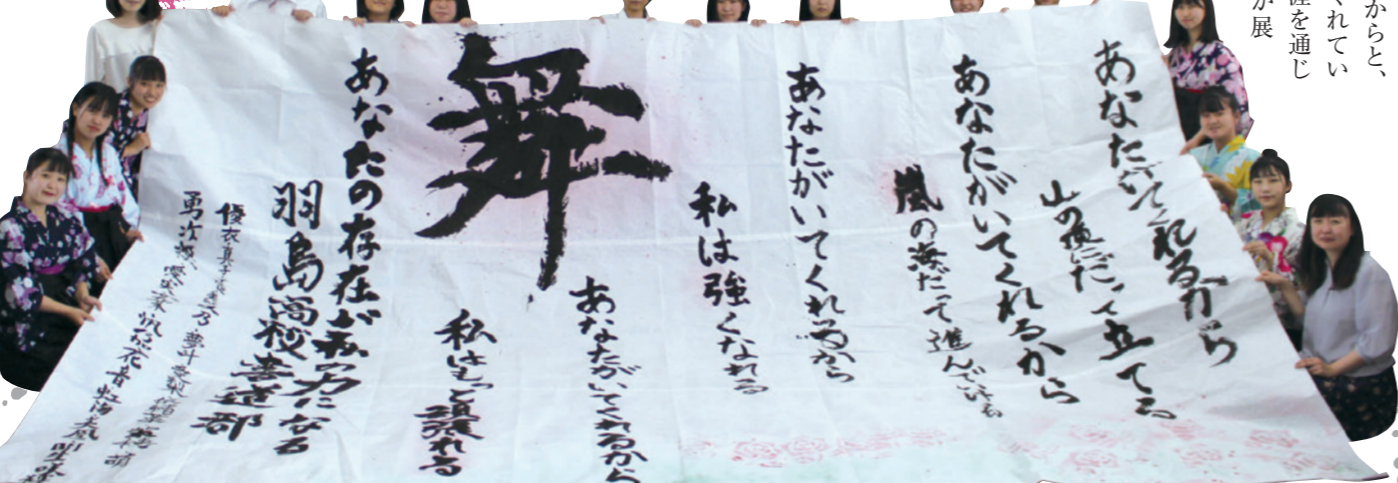 からと、
くれてい
涯を通じ
が展
あなたがいてくれるから
山の頂にだって立てる
あなたがいてくれるから
嵐の海だって進んでいける
あなたがいてくれるから
私は強くなれる
舞
あなたがいてくれるから
私はもっと頑張れる
あなたの存在が私の力になる
羽島高校書道部